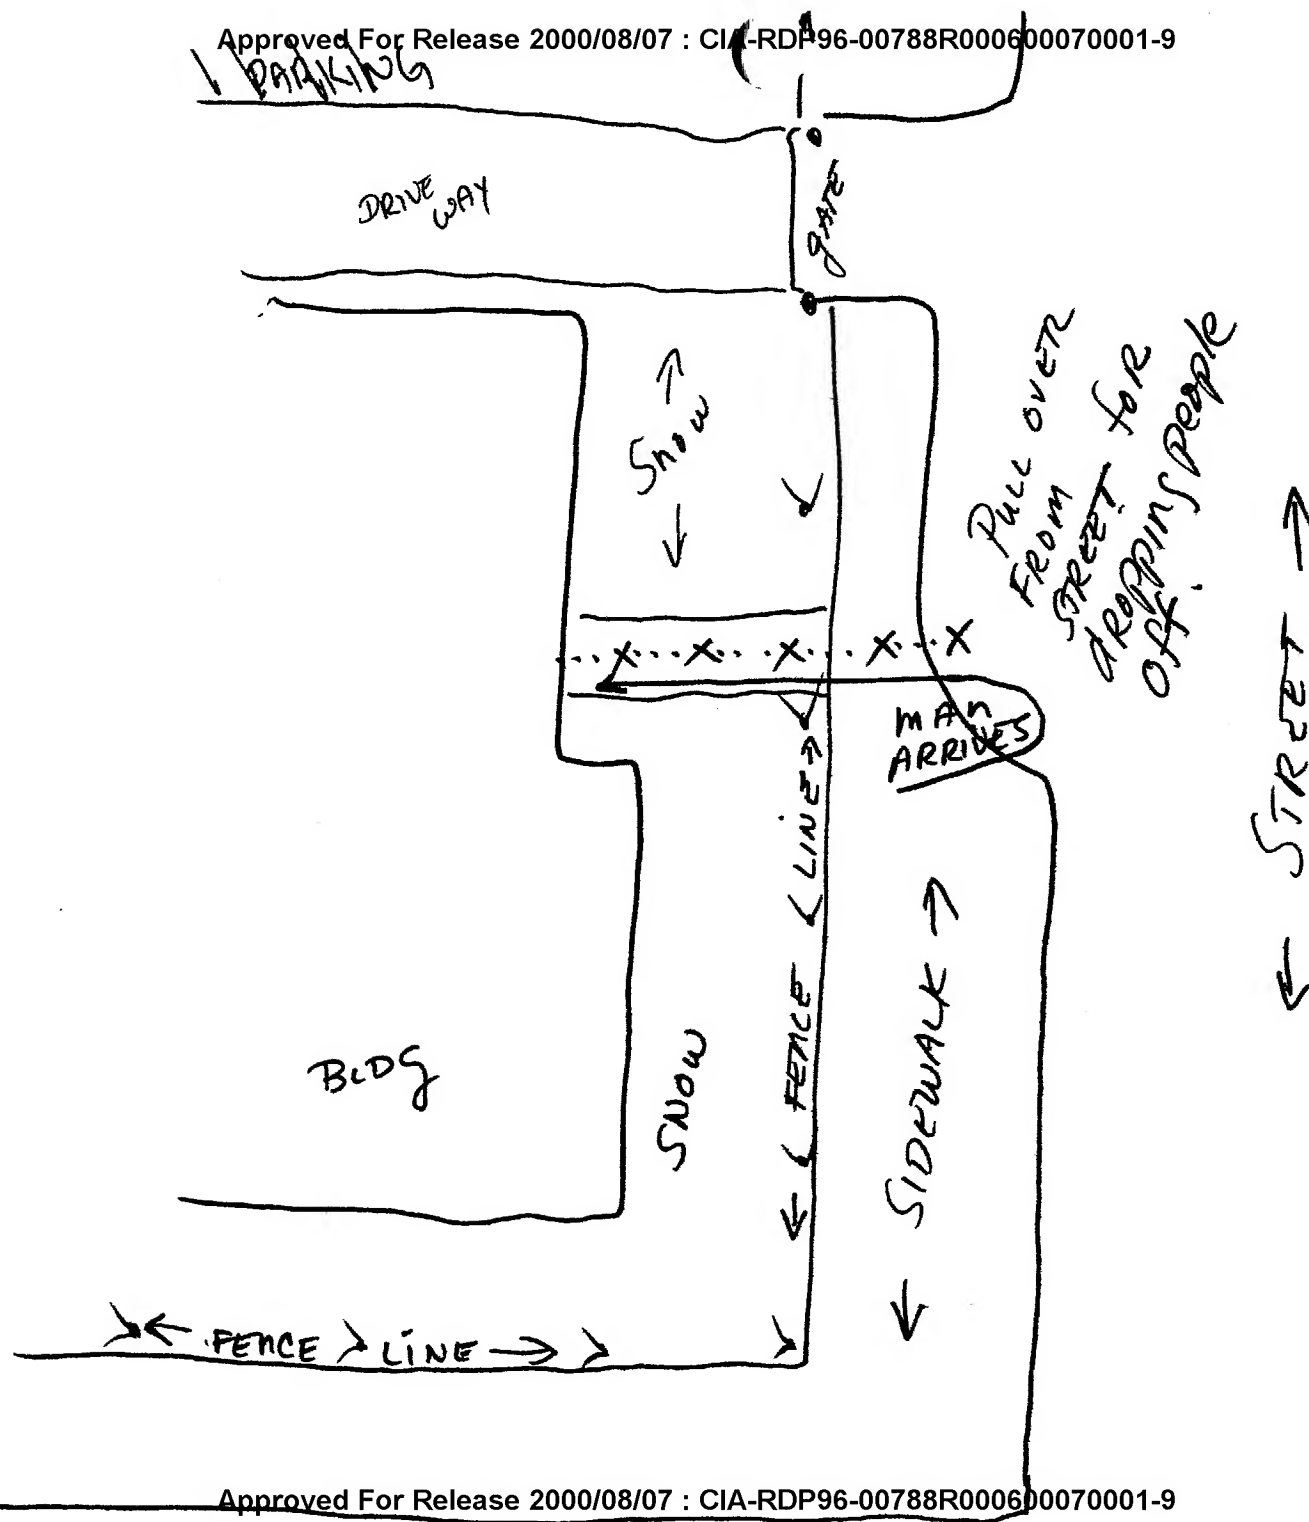 Approved For Release 2000/08/07 : CIA-RDP96-00788R000600070001-9
PARKING
DRIVE
WAY
gATE
Snow
PULL OVER
FROM
STREET for
dROPPINg people
Off.
MAn
ARRIVES
FENCE LINE
STREET
SIDEWALK
SNOW
BLDG
FEnCE LiNE
Approved For Release 2000/08/07 : CIA-RDP96-00788R000600070001-9